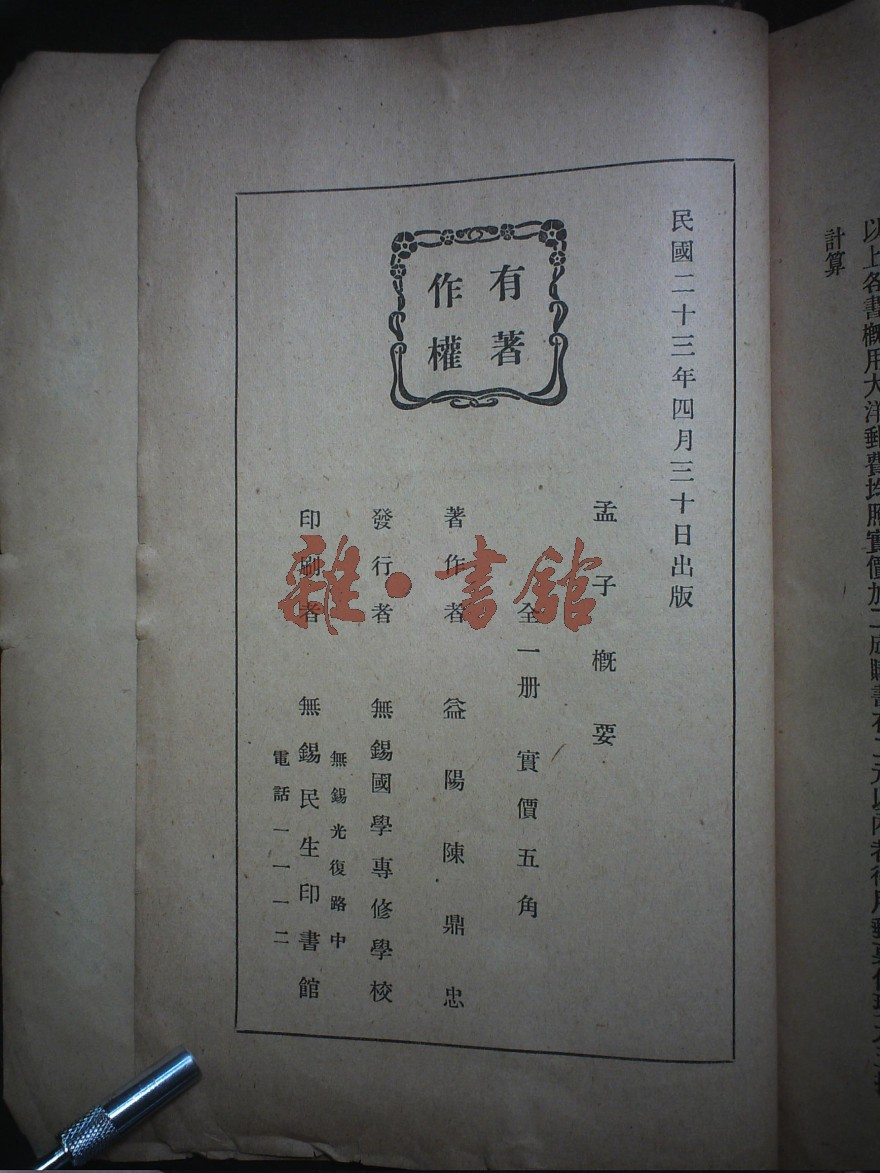 以上各書概用大洋郵費均照實價加二成購書在二元以內者得用郵票代現
計算
民國二十三年四月三十日出版
有著
作權
孟子概要
全一册 實價五角
著作者 益陽陳鼎忠
發行者 無錫國學專修學校
無錫光復路中
印刷者 無錫民生印書館
電話一一一二
雜·書館